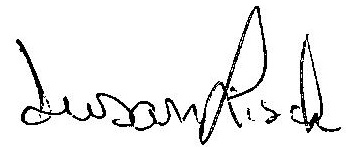 Susan Risch